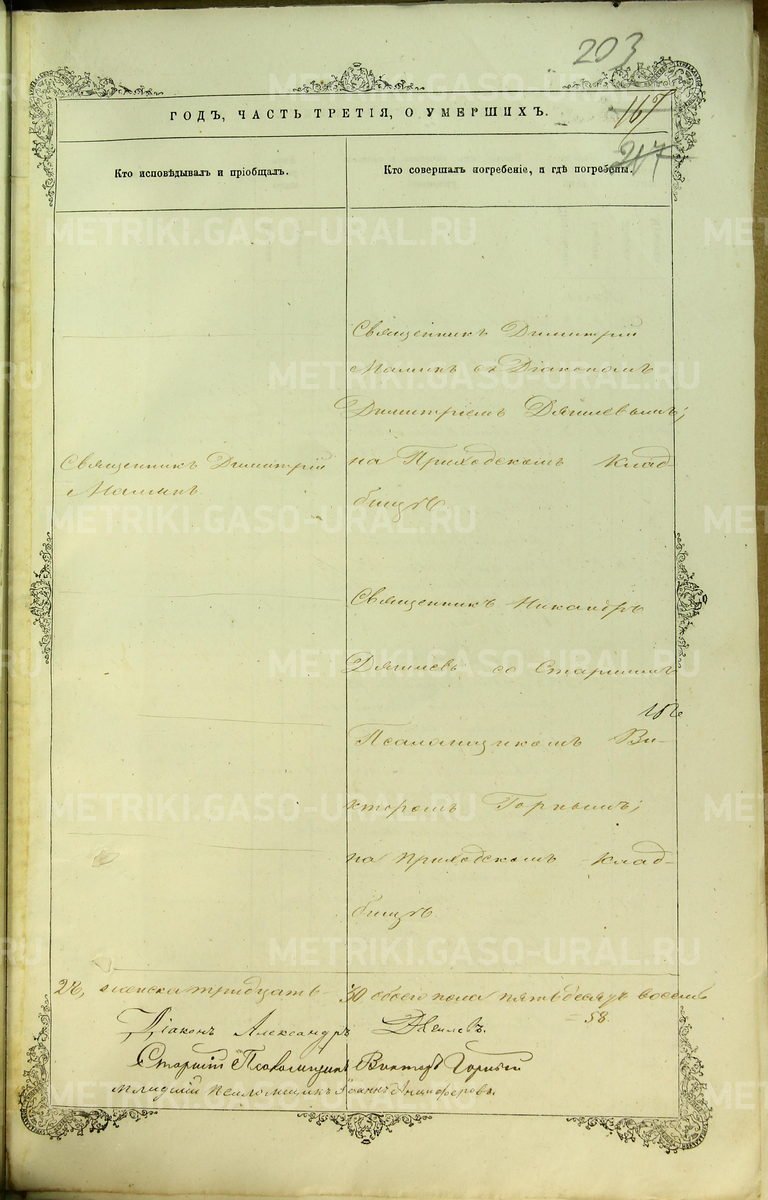 203
167
217
ГОДЪ, ЧАСТЬ ТРЕТІЯ, О УМЕРШИХЪ.
Кто исповѣдывалъ и пріобщалъ.
Кто совершалъ погребеніе, и гдѣ погребены.
Священникъ Димитрій
Маминъ
Священникъ Димитрій
Маминъ съ Діакономъ
Димитріемъ Дягилевымъ;
на Приходскомъ Клад-
бищѣ
Священникъ Никаноръ
Дягилевъ со Старшимъ
Псаломщикомъ Ви-
кторомъ Горнымъ;
на приходскомъ клад-
бищѣ
28, женска тридцать 30 обоего пола пятьдесятъ восемь
58.
Діаконъ Александръ
Старшій Псаломщикъ Викторъ Горный
Младшій Псаломщикъ Іоаннъ Анциферовъ.
METRIKI.GASO-URAL.RU